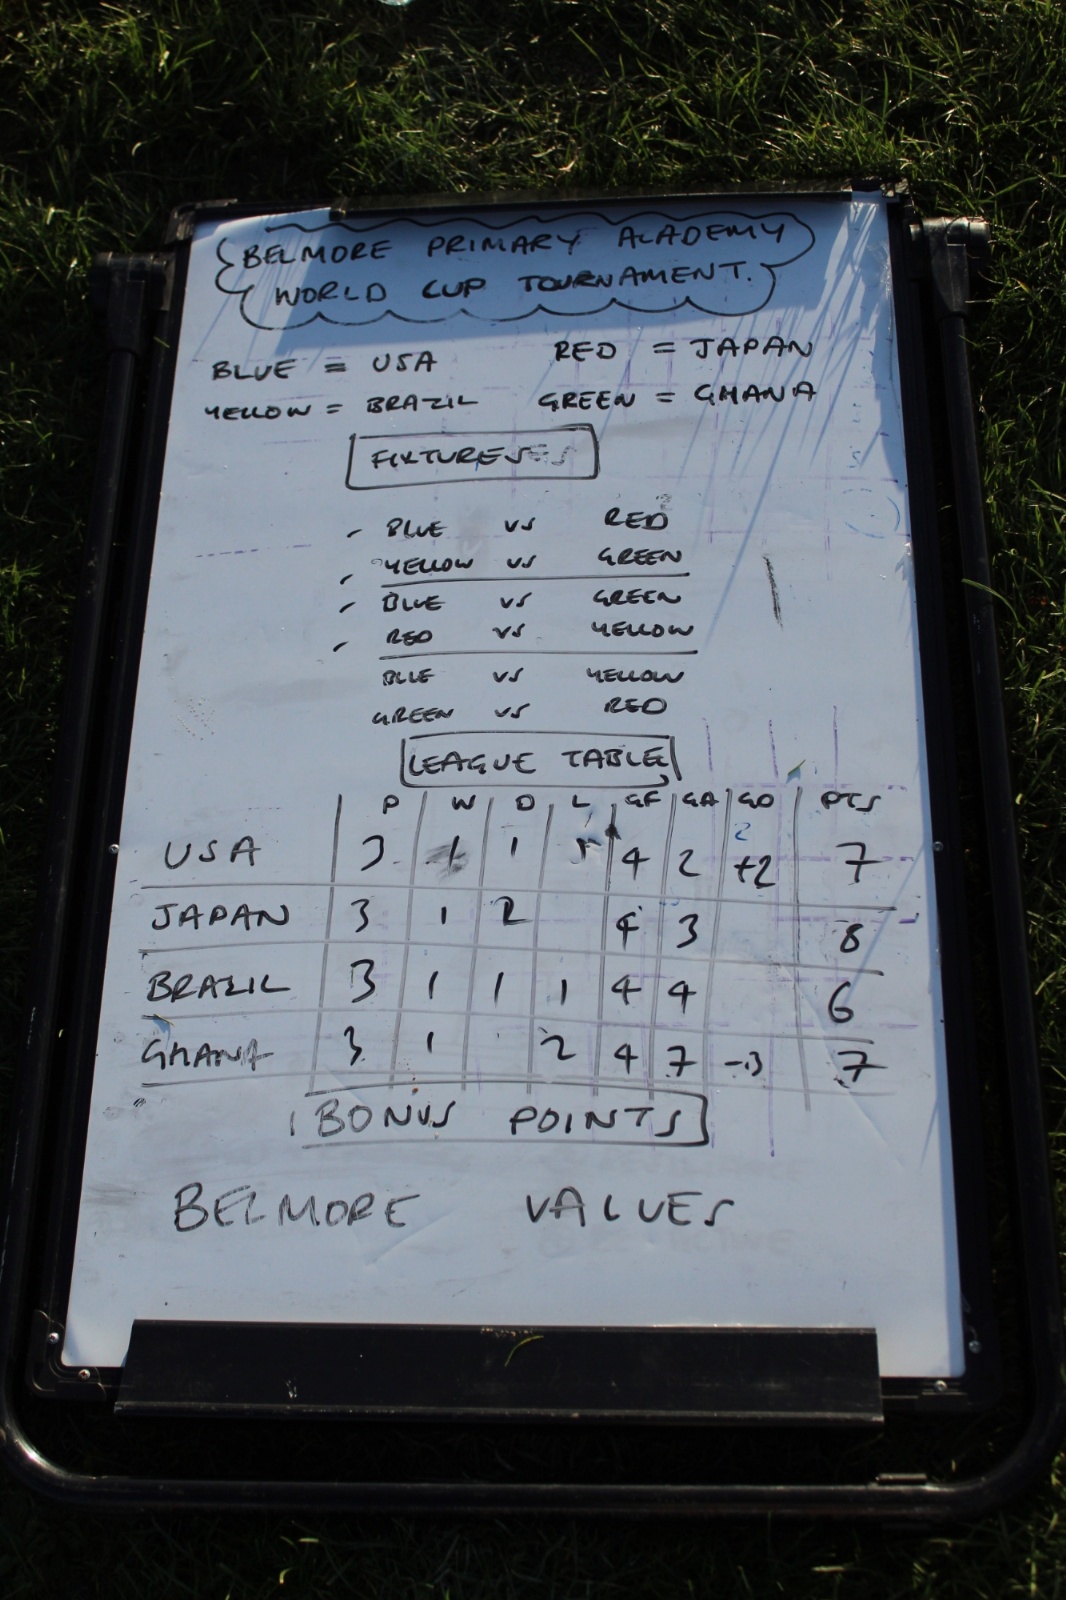 BELMORE PRIMARY ACADEMY
WORLD CUP TOURNAMENT.
BLUE = USA RED = JAPAN
YELLOW = BRAZIL GREEN = GHANA
FIXTURES
BLUE VS RED
YELLOW VS GREEN
BLUE VS GREEN
RED VS YELLOW
BLUE VS YELLOW
GREEN VS RED
LEAGUE TABLE
P W D L GF GA GD PTS
USA 3 1 1 1 4 2 +2 7
JAPAN 3 1 2 4 3 8
BRAZIL 3 1 1 1 4 4 6
GHANA 3 1 2 4 7 -3 7
BONUS POINTS
BELMORE VALUES